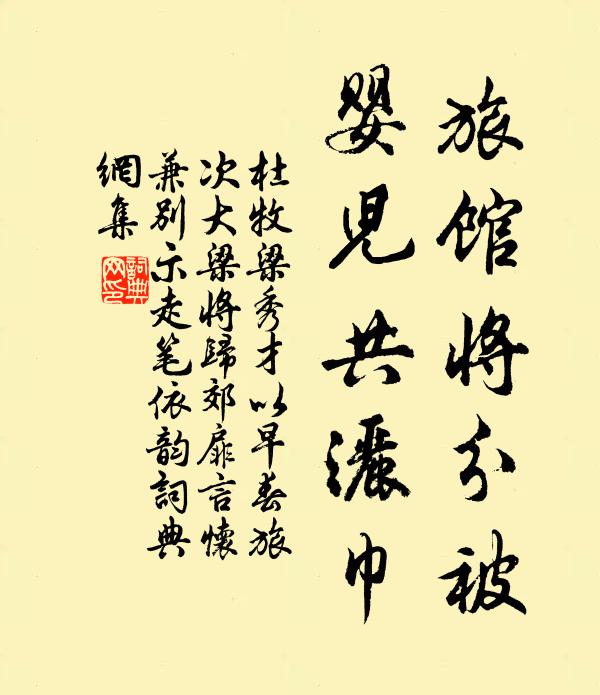 旅館將分被
嬰兒共灑巾
杜牧梁秀才以早春旅
次大梁將歸郊扉言懷
兼別示走筆依韵詞典
網集
詞典
网印